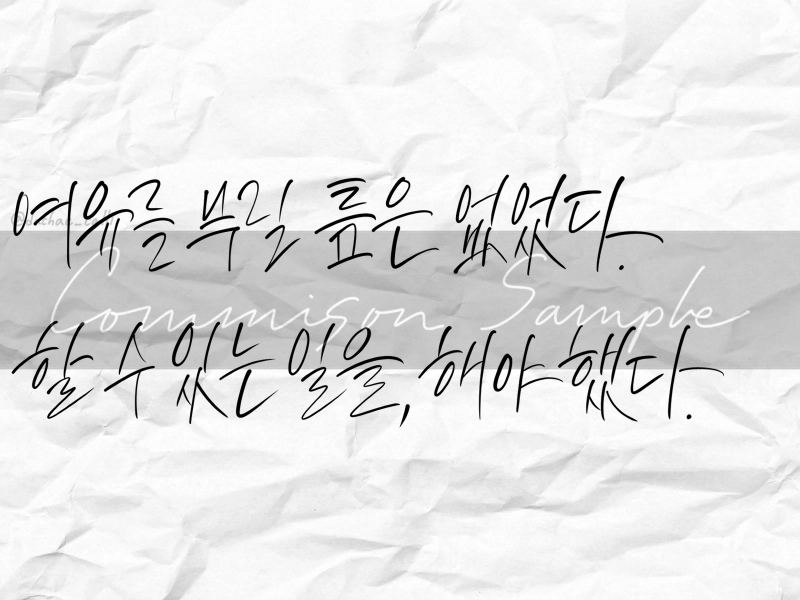 여유를 부릴 틈은 없었다.
Commison Sample
할 수 있는 일을, 해야 했다.